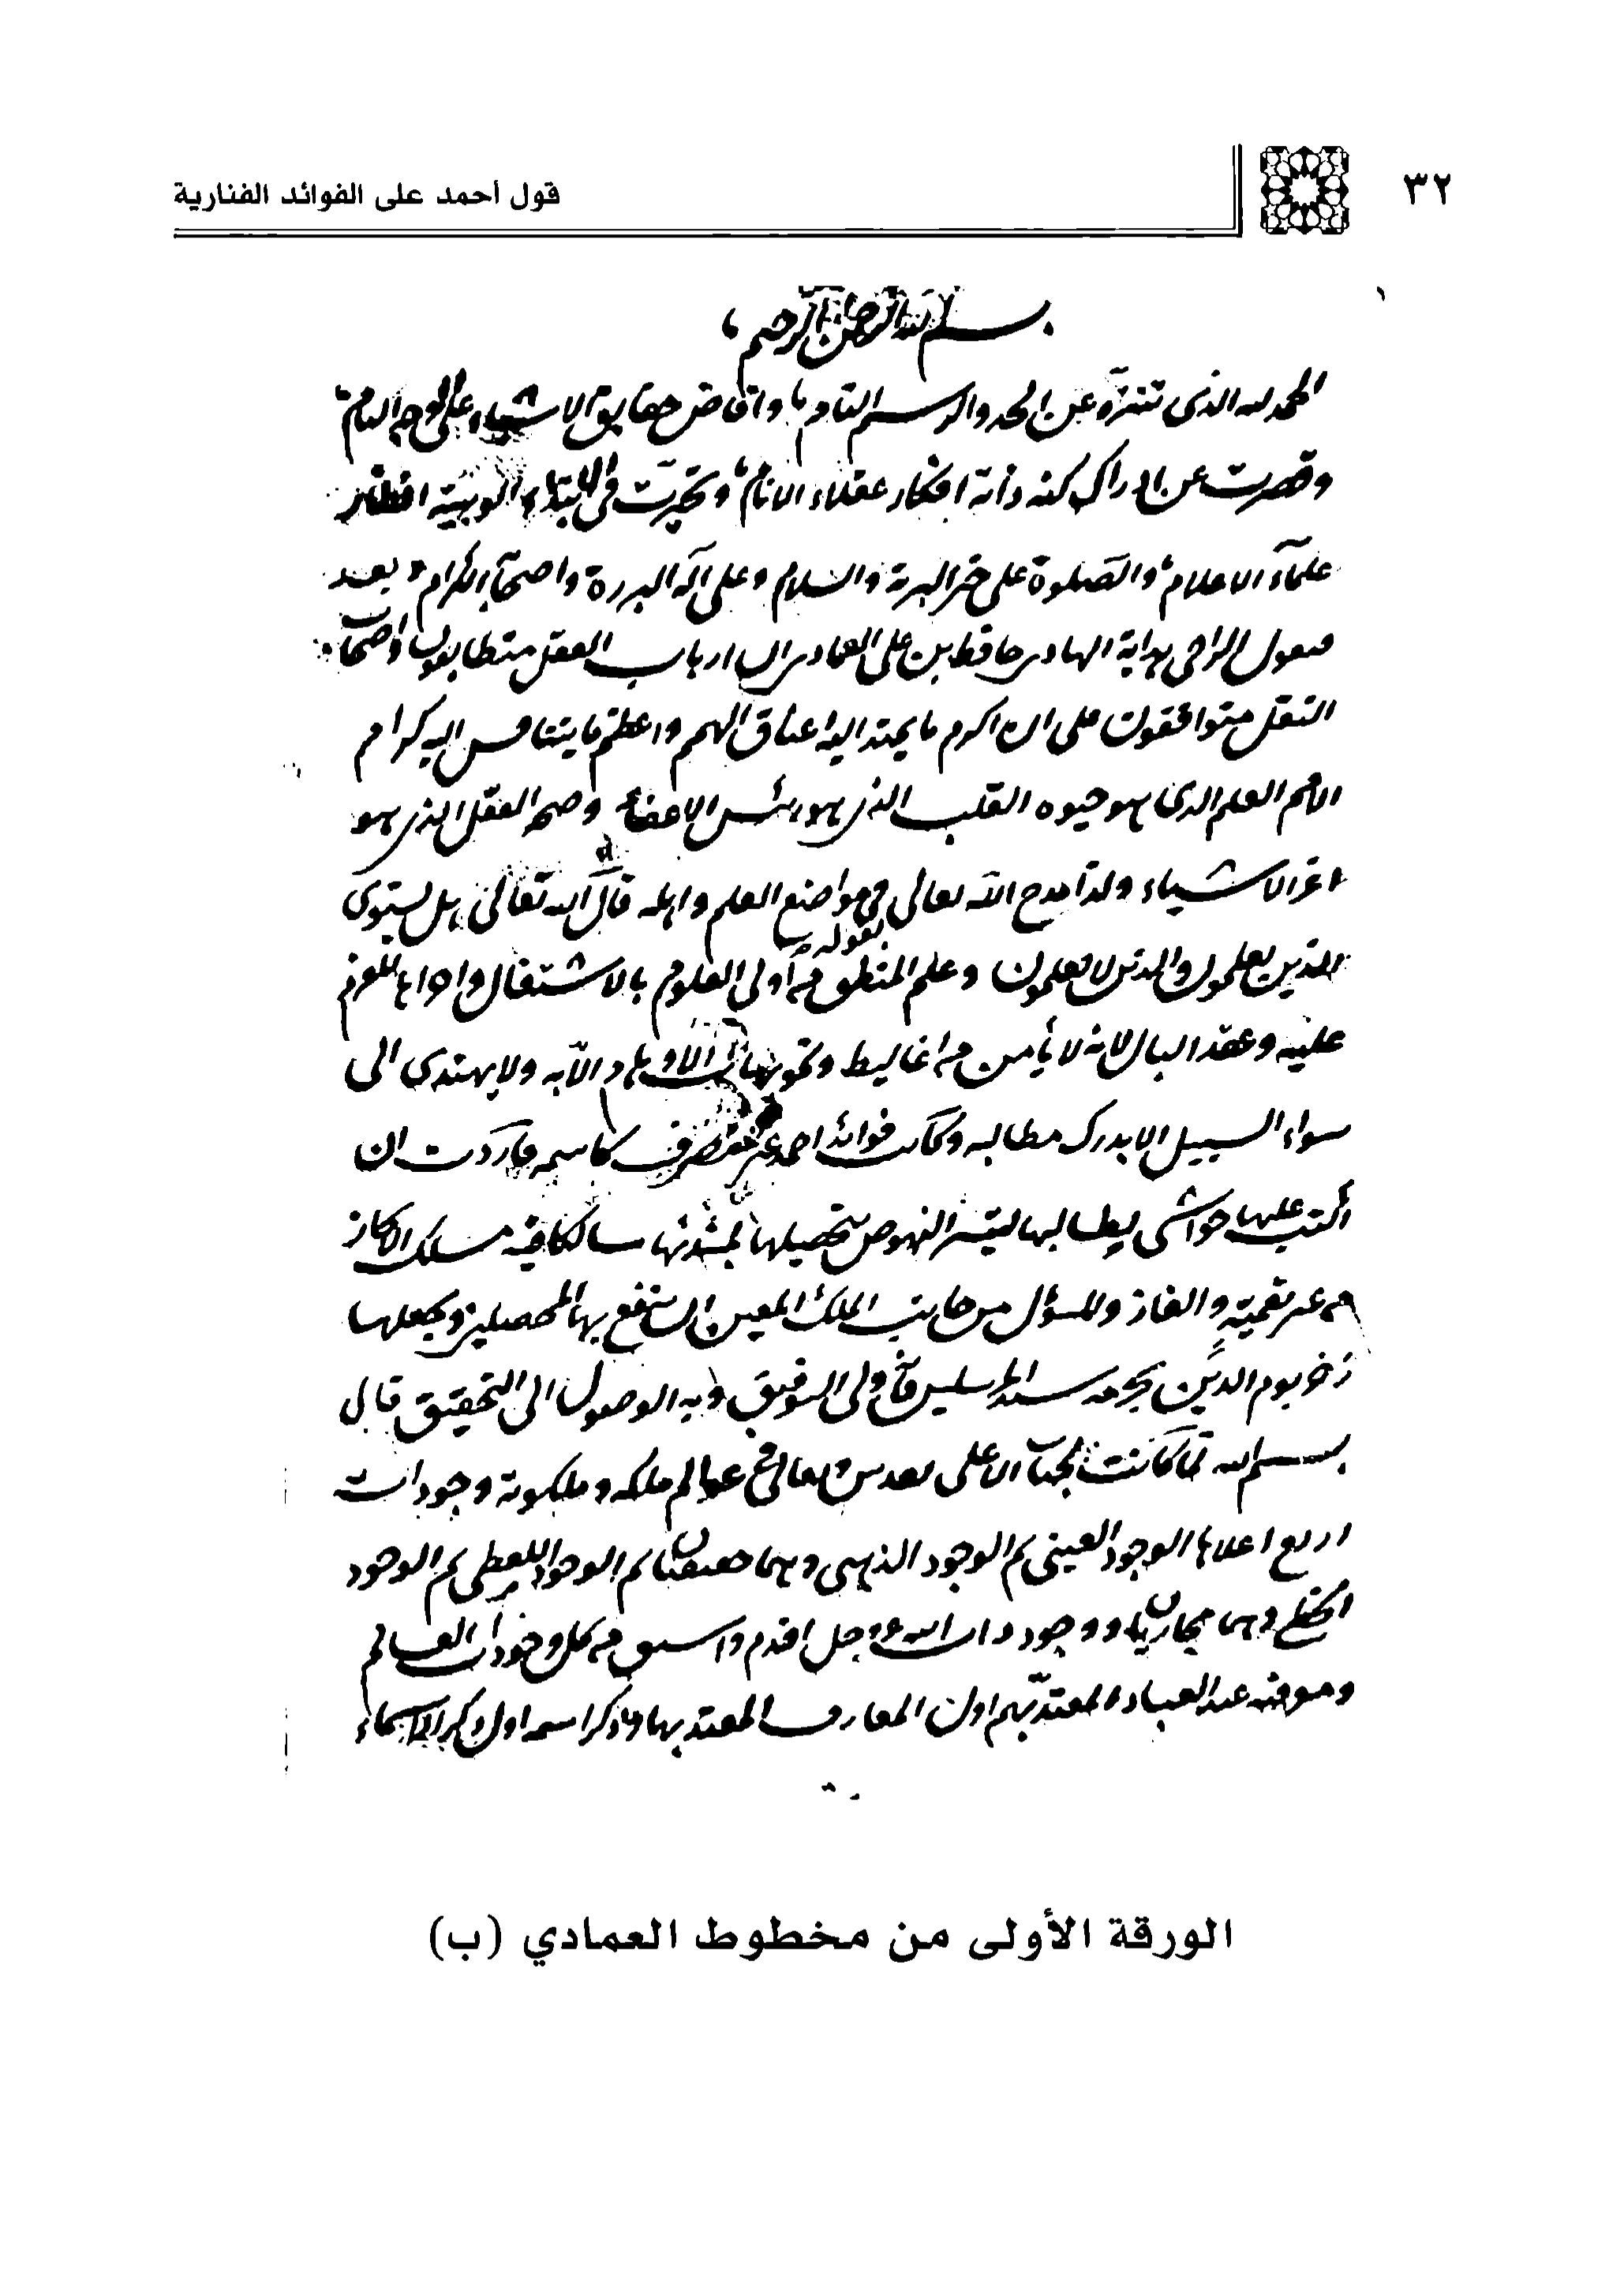 ٣٢
قول أحمد على الفوائد الفنارية
بسم الله الرحمن الرحيم
الحمد لله الذى تنزه عن الحد والرسم التام وافاض حقايق الاشياء على الوجه التام
وقصرت عن ادراك كنه ذاته افكار عقلاء الانام وتحيرت فى ابتداء الوهيته افكار
علماء الاعلام والصلوة على خير البرية والسلام وعلى آله البررة واصحابه الكرام وبعد
فيقول الراجى هداية الهادى حافظ بن على العمادى ان ارباب العقل متطابقون واصحاب
النقل متوافقون على ان اكرم ما يمتد اليه اعناق الهمم واعظم ما يتنافس اليه كرام
الامم العلم الذى هو حيوه القلب الذى هو رئس الاعضاء وصحة العقل الذى هو
اعز الاشياء ولذا مدح الله تعالى فى مواضع العلم واهله قال الله تعالى هل يستوى
بقوله
الذين يعلمون والذين لا يعلمون وعلم المنطق من اولى العلوم بالاشتغال للعزم
عليه وعقد البال لانه لا يأمن من اغاليط وتمويهات الاوهام الا به ولا يهتدى الى
سواء السبيل الا بدرك مطالبه وكانت فوائد احمد كاسمه فاردت ان
اكتب عليها حواشى لطالبها ليتيسر النهوض بتحصيلها سالكا فيه مسلك الايجاز
من غير تعمية والغاز والمسؤل من جانب الملك المعين ان ينتفع بها المحصلين ويجعلها
ذخر يوم الدين بحرمة سيد المرسلين فانه ولى التوفيق وبه الوصول الى التحقيق قال
بسم الله لما كانت لجنابه الاعلى تقدس وتعالى فى عوالم ملكه وملكوته وجودات
اربع اعلاها الوجود العينى ثم الوجود الذهنى وهما حقيقيان ثم الوجود اللفظى ثم الوجود
الخطى وهما مجازيان ووجود ذات الله عز وجل اقدم واسبق من كل وجودات العالم
ومعرفته عند العباد المعتد بهم اول المعارف المعتد بها وذكر اسمه اول ذكر الاسماء
الورقة الأولى من مخطوط العمادي (ب)